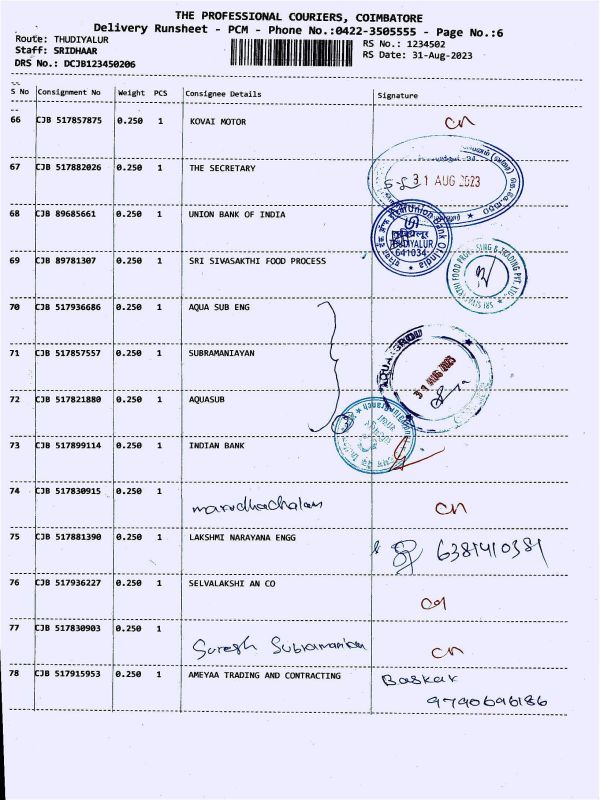 THE PROFESSIONAL COURIERS, COIMBATORE
Delivery Runsheet - PCM - Phone No.:0422-3505555 - Page No.:6
Route: THUDIYALUR
RS No.: 1234502
Staff: SRIDHAAR
RS Date: 31-Aug-2023
DRS No.: DCJB123450206
S No Consignment No Weight PCS Consignee Details Signature
66 CJB 517857875 0.250 1 KOVAI MOTOR cn
67 CJB 517882026 0.250 1 THE SECRETARY
31 AUG 2023
68 CJB 89685661 0.250 1 UNION BANK OF INDIA
Union Bank Of India
THUDIYALUR
641034
69 CJB 89781307 0.250 1 SRI SIVASAKTHI FOOD PROCESS
70 CJB 517936686 0.250 1 AQUA SUB ENG
71 CJB 517857557 0.250 1 SUBRAMANIAYAN
31 AUG 2023
72 CJB 517821880 0.250 1 AQUASUB
73 CJB 517899114 0.250 1 INDIAN BANK
74 CJB 517830915 0.250 1 marudhachalam cn
75 CJB 517881390 0.250 1 LAKSHMI NARAYANA ENGG 6381410381
76 CJB 517936227 0.250 1 SELVALAKSHI AN CO
77 CJB 517830903 0.250 1 Suresh Subramanian cn
78 CJB 517915953 0.250 1 AMEYAA TRADING AND CONTRACTING Baskar
9790696186